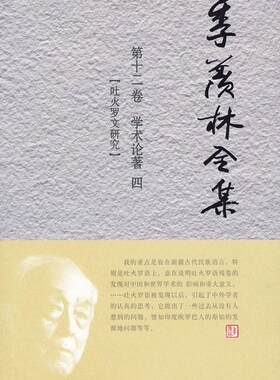 季羡林全集
第十二卷 学术论著 四
【吐火罗文研究】
我的重点是放在新疆古代民族语言，特
别是吐火罗语上，意在说明吐火罗语残卷的
发现对中国和世界学术的 影响和重大意义。
……吐火罗语被发现以后，引起了中外学者
的认真的思考。它提出了一些过去从没有人
想到的问题，譬如印度欧罗巴人的原始的发
源地问题等等。